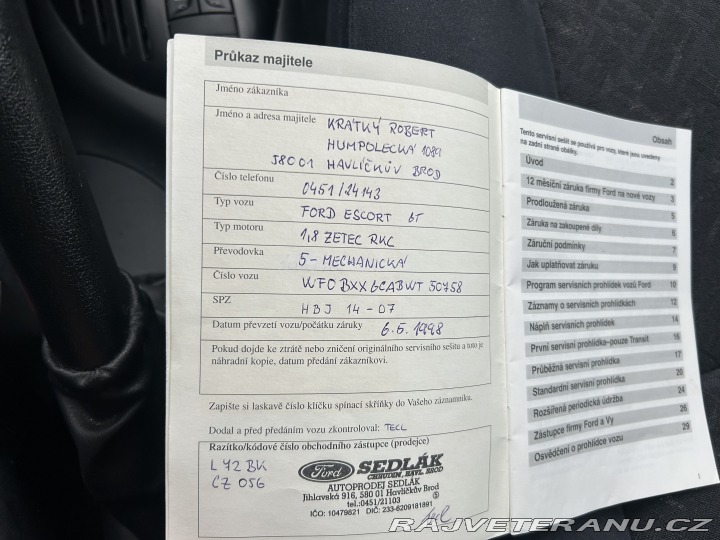 Průkaz majitele
Jméno zákazníka
Jméno a adresa majitele KRÁTKÝ ROBERT
HUMPOLECKÁ 1089
58001 HAVLÍČKŮV BROD
Číslo telefonu 0451/24143
Typ vozu FORD ESCORT 6T
Typ motoru 1,8 ZETEC RKC
Převodovka 5-MECHANICKÁ
Číslo vozu WF0BXXGCABWT50758
SPZ HBJ 14-07
Datum převzetí vozu/počátku záruky 6.5.1998
Pokud dojde ke ztrátě nebo zničení originálního servisního sešitu a toto je
náhradní kopie, datum předání zákazníkovi.
Zapište si laskavě číslo klíčku spínací skříňky do Vašeho záznamníku.
Dodal a před předáním vozu zkontroloval: TECL
Razítko/kódové číslo obchodního zástupce (prodejce)
L 42 BK
CZ 056
Ford SEDLÁK
CHRUDIM, HAVL. BROD
AUTOPRODEJ SEDLÁK
Jihlavská 916, 580 01 Havlíčkův Brod
tel.:0451/21103
IČO: 10479821 DIČ: 233-6209181891
Obsah
Tento servisní sešit se používá pro vozy, které jsou uvedeny
na zadní straně obálky.
Úvod 2
12 měsíční záruka firmy Ford na nové vozy 3
Prodloužená záruka 5
Záruka na zakoupené díly 6
Záruční podmínky 7
Jak uplatňovat záruku 9
Program servisních prohlídek vozů Ford 10
Záznamy o servisních prohlídkách 12
Náplň servisních prohlídek 14
První servisní prohlídka-pouze Transit 16
Průběžná servisní prohlídka 17
Standardní servisní prohlídka 20
Rozšířená periodická údržba 24
Zástupce firmy Ford a Vy 26
Osvědčení o prohlídce vozu 29
1
RAJVETERANU.CZ